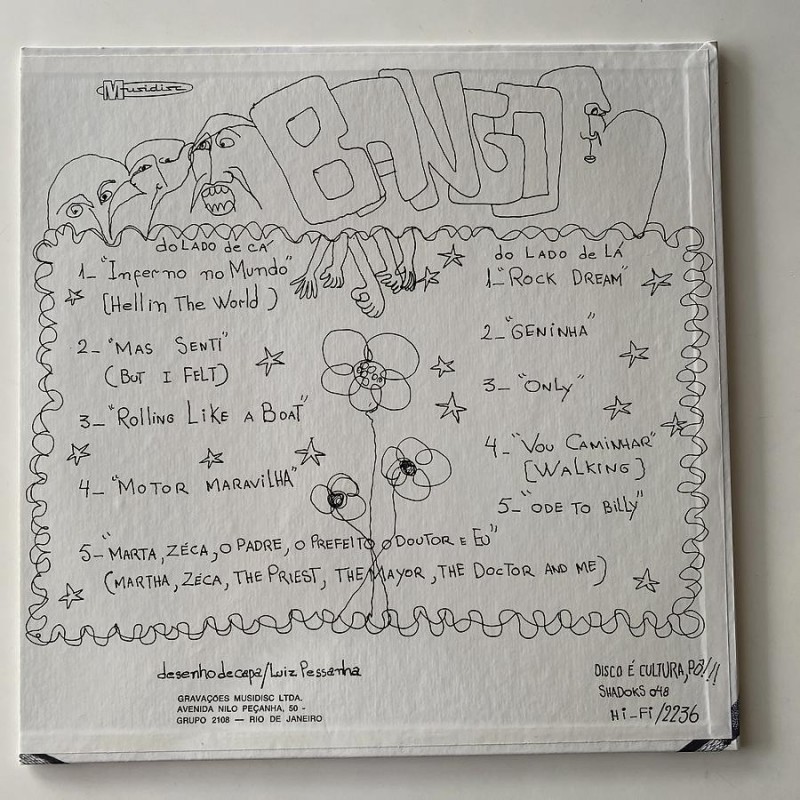 Musidisc
BANGO
do LADO de CÁ
1_ "Inferno no Mundo"
(Hell in The World)
2_ "MAS SENTI"
(BUT I FELT)
3_ "Rolling Like a Boat"
4_ "MOTOR MARAVILHA"
5_ "MARTA, ZÉCA, O PADRE, O PREFEITO, O DOUTOR E EU"
(MARTHA, ZÉCA, THE PRIEST, THE MAYOR, THE DOCTOR AND ME)
do LADO de LÁ
1_ "ROCK DREAM"
2_ "GENINHA"
3_ "ONLY"
4_ "VOU CAMINHAR"
[WALKING]
5_ "ODE TO BILLY"
desenho de capa/Luiz Pessanha
GRAVAÇÕES MUSIDISC LTDA.
AVENIDA NILO PEÇANHA, 50 -
GRUPO 2108 — RIO DE JANEIRO
DISCO É CULTURA, PÔ!!!
SHADOKS 048
Hi-Fi/2236